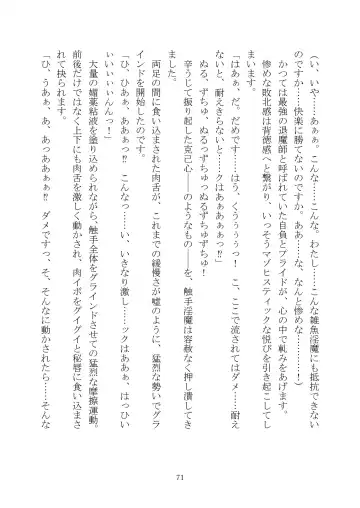 (い、いや……あぁぁ。こんな……こんな、わたし……こんな雑魚淫魔にも抵抗できない
のですか……快楽に勝てないのですか。……な、なんと惨めな………！)
かつては最強の退魔師と呼ばれていた自負とプライドが、心の中で軋みをあげます。
惨めな敗北感は背徳感へと繋がり、いっそうマゾヒスティックな悦びを引き起こしてし
まいます。
「はぁぁ、だ、だめです……はう、くううぅぅっ！　こ、ここで流されてはダメ……耐え
ないと、耐えきらないと……クはあぁぁぁっ⁉」
ぬる、ずちゅ、ぬるっずちゅっぬるずちゅずちゅ！
辛うじて振り起した克己心――のようなもの――を、触手淫魔は容赦なく押し潰してき
ました。
両足の間に食い込まされた肉舌が、これまでの緩慢さが嘘のように、猛烈な勢いでグラ
インドを開始したのです。
「ひ、ひあぁっ、あああっ⁉　こんなっ……い、いきなり激し……ックはああぁ、はっひい
ぃいぃぃんんっ！」
大量の媚薬粘液を塗り込められながら、触手全体をグラインドさせての猛烈な摩擦運動。
前後だけではなく上下にも肉舌を激しく動かされ、肉イボをグイグイと秘唇に食い込まさ
れて抉られます。
「ひ、うあぁ、あ、あっああぁぁ⁉　ダメですっ、そ、そんなに動かされたら……そんな
71